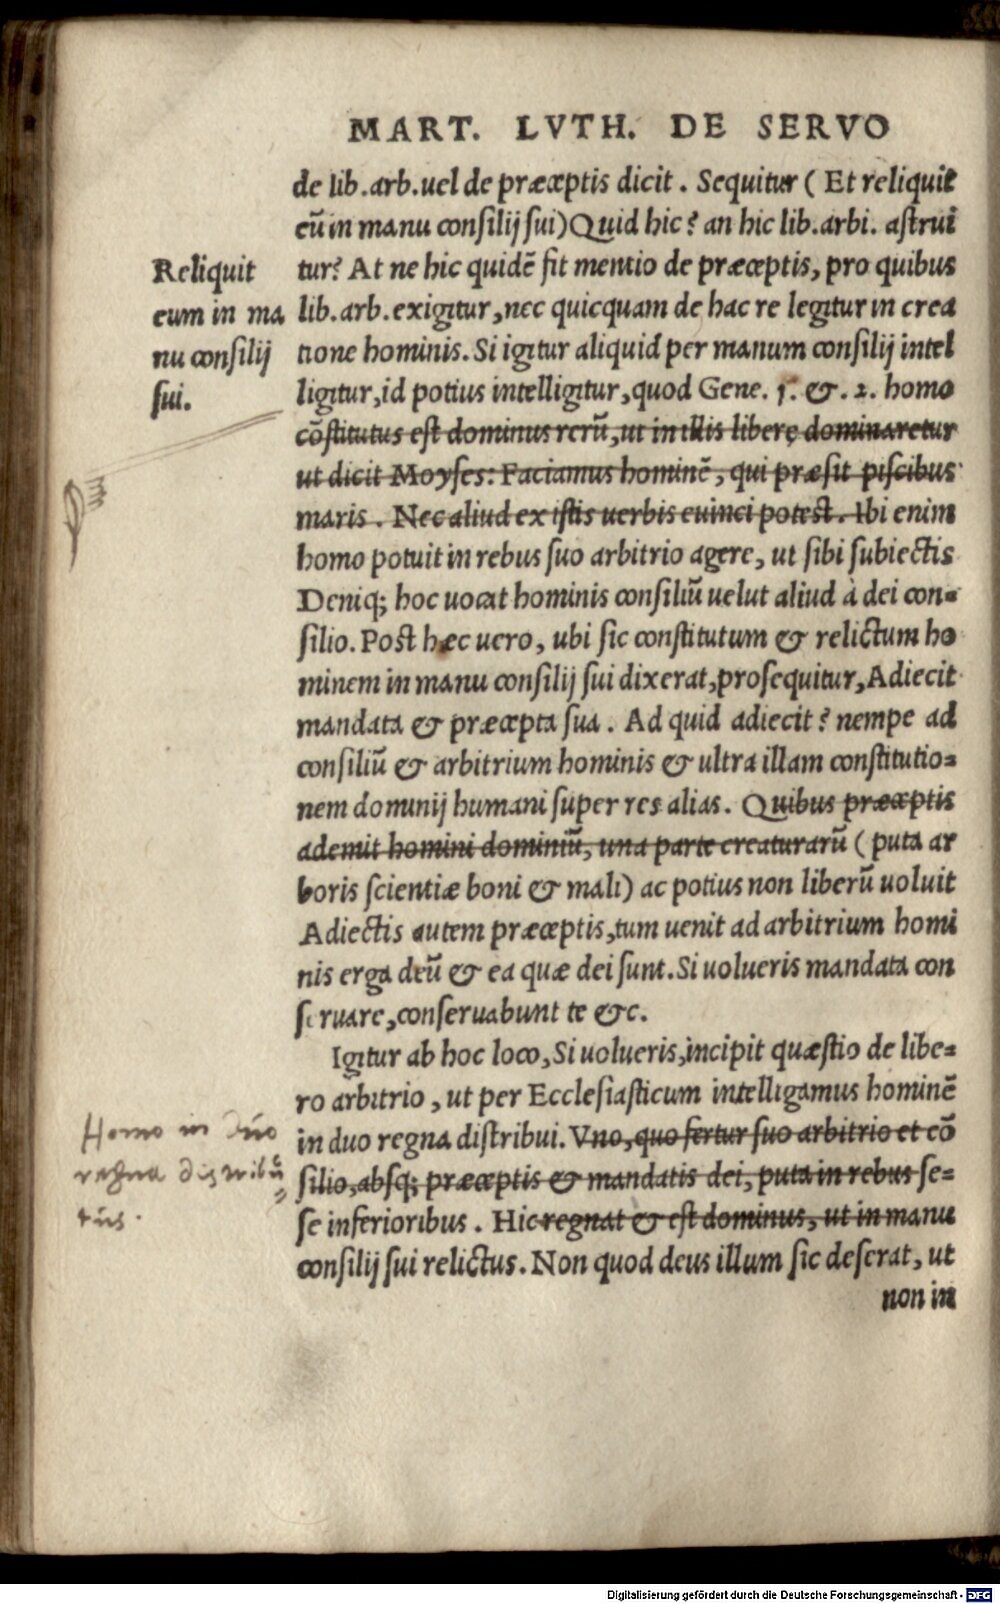 MART. LVTH. DE SERVO
de lib.arb.uel de præceptis dicit. Sequitur ( Et reliquit
eū in manu consilij sui) Quid hic? an hic lib.arbi. astrui
tur? At ne hic quidē fit mentio de præceptis, pro quibus
lib.arb.exigitur, nec quicquam de hac re legitur in crea
tione hominis. Si igitur aliquid per manum consilij intel
ligitur, id potius intelligitur, quod Gene. 1. & .2. homo
cōstitutus est dominus rerū, ut in illis libere dominaretur
ut dicit Moyses: Faciamus hominē, qui præsit piscibus
maris. Nec aliud ex istis uerbis euinci potest. Ibi enim
homo potuit in rebus suo arbitrio agere, ut sibi subiectis
Deniq; hoc uocat hominis consiliū uelut aliud à dei con=
silio. Post hæc uero, ubi sic constitutum & relictum ho
minem in manu consilij sui dixerat, prosequitur, Adiecit
mandata & præcepta sua. Ad quid adiecit? nempe ad
consiliū & arbitrium hominis & ultra illam constitutio=
nem dominij humani super res alias. Quibus præceptis
ademit homini dominiū, una parte creaturarū ( puta ar
boris scientiæ boni & mali) ac potius non liberū uoluit
Adiectis autem præceptis, tum uenit ad arbitrium homi
nis erga deū & ea quæ dei sunt. Si uolueris mandata con
seruare, conseruabunt te &c.
Igitur ab hoc loco, Si uolueris, incipit quæstio de libe=
ro arbitrio, ut per Ecclesiasticum intelligamus hominē
in duo regna distribui. Vno, quo fertur suo arbitrio et cō
silio, absq; præceptis & mandatis dei, puta in rebus se=
se inferioribus. Hic regnat & est dominus, ut in manu
consilij sui relictus. Non quod deus illum sic deserat, ut
non in
Reliquit
eum in ma
nu consilij
sui.
Homo in duo
regna distribū
=
tus.
Digitalisierung gefördert durch die Deutsche Forschungsgemeinschaft - DFG